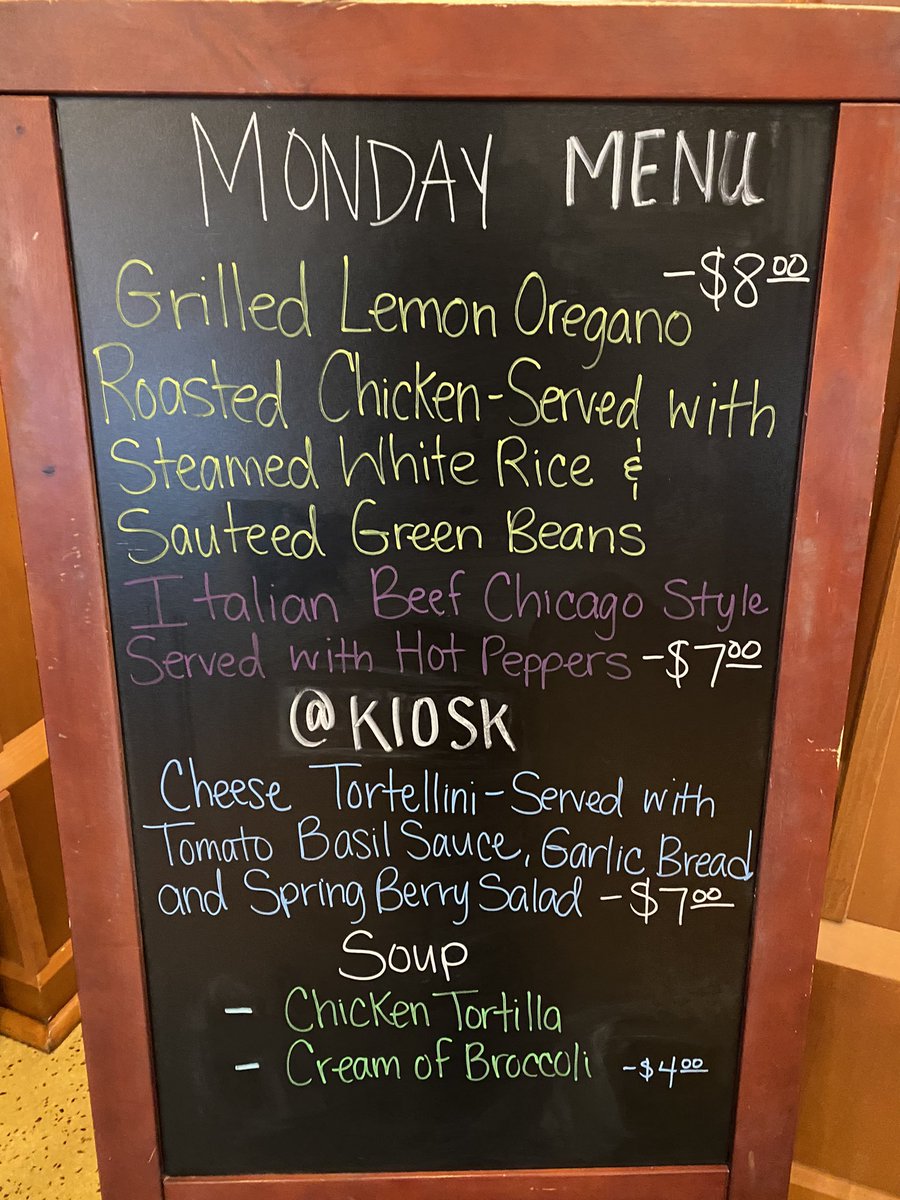 MONDAY MENU
Grilled Lemon Oregano -$8.00
Roasted Chicken-Served with
Steamed White Rice &
Sauteed Green Beans
Italian Beef Chicago Style
Served with Hot Peppers -$7.00
@KIOSK
Cheese Tortellini-Served with
Tomato Basil Sauce, Garlic Bread
and Spring Berry Salad -$7.00
Soup
- Chicken Tortilla
- Cream of Broccoli -$4.00